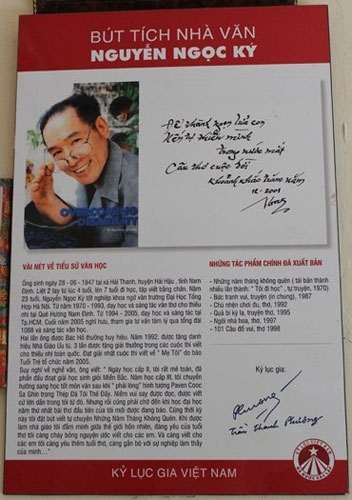 BÚT TÍCH NHÀ VĂN
NGUYỄN NGỌC KÝ
Để thành ngọn lửa con
Nến tự thiêu mình
trong nước mắt
Câu thơ cuộc đời
Khoảnh khắc trăm năm
VÀI NÉT VỀ TIỂU SỬ VĂN HỌC
Ông sinh ngày 28 - 06 - 1947 tại xã Hải Thanh, huyện Hải Hậu, tỉnh Nam
Định. Liệt 2 tay từ lúc 4 tuổi, lên 7 tuổi đi học, tập viết bằng chân. Năm
23 tuổi, Nguyễn Ngọc Ký tốt nghiệp khoa ngữ văn trường Đại Học Tổng
Hợp Hà Nội. Từ năm 1970 - 1993, dạy học và sáng tác văn thơ cho thiếu
nhi tại Quê Hương Nam Định. Từ 1994 - 2005, dạy học và sáng tác tại
Tp.HCM. Cuối năm 2005 nghỉ hưu, tham gia tư vấn tâm lý qua tổng đài
1088 và sáng tác văn học.
Hai lần ông được Bác Hồ thưởng huy hiệu. Năm 1992, được tặng danh
hiệu Nhà Giáo Ưu tú. 3 lần được tặng giải thưởng trong các cuộc thi viết
cho thiếu nhi toàn quốc. Đạt giải nhất cuộc thi viết về " Mẹ Tôi" do báo
Tuổi Trẻ tổ chức năm 2005.
Suy nghĩ về nghề văn, ông viết: " Ngày học cấp II, tôi rất mê toán, đã
phấn đấu đoạt giải học sinh giỏi Miền Bắc. Năm học cấp III, tôi chuyển
hướng sang học tốt môn văn sau khi " phải lòng" hình tượng Paven Cooc
Sa Ghin trong Thép Đã Tôi Thế Đấy. Niềm vui say được đọc, được viết
cứ lớn dần trong tôi từ đó. Nhưng rồi cũng phải chờ đến khi học đại học
năm thứ nhất bài thơ đầu tiên của tôi mới được đăng báo. Cũng thời kỳ
này tôi đặt bút viết tự chuyện Những Năm Tháng Không Quên. Khi được
làm nhà giáo tôi đắm mình giữa thế giới hồn nhiên, đáng yêu của tuổi
thơ tôi càng cháy bỏng nguyện ước viết cho các em. Và càng viết cho
các em tôi càng yêu thêm tuổi thơ, càng gắn bó với sự nghiệp làm thầy
của mình..."
NHỮNG TÁC PHẨM CHÍNH ĐÃ XUẤT BẢN
- Những năm tháng không quên ( tái bản thành
nhiều lần thành: " Tôi đi học" , tự truyện, 1970)
- Bức tranh vui, truyện (in chung), 1987
- Chú nhện chơi đu, thơ, 1992
- Quả bí kỳ lạ, truyện thơ, 1995
- Ngôi nhà hoa, thơ, 1997
- 101 Câu đố vui, thơ 1998
Kỷ lục gia:
Trần Thanh Phương
KỶ LỤC GIA VIỆT NAM